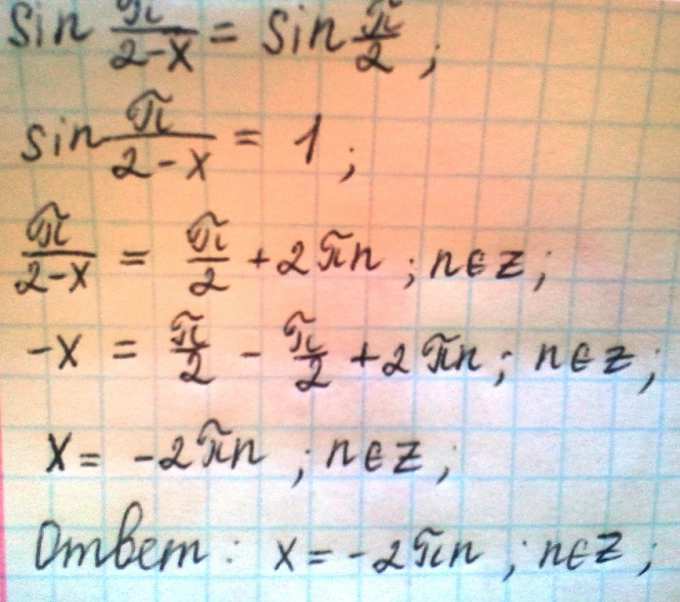 sin π/(2-x) = sin π/2 ;
sin π/(2-x) = 1 ;
π/(2-x) = π/2 + 2πn ; n∈z ;
-x = π/2 - π/2 + 2πn ; n∈z ;
x = -2πn ; n∈z ;
Ответ : x = -2πn ; n∈z ;